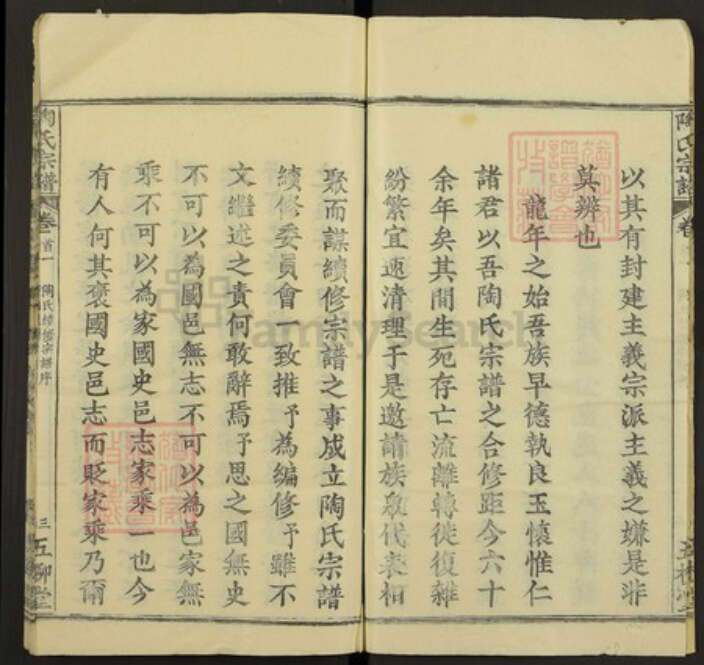 陶氏宗譜
卷
以其有封建主義宗派主義之嫌是非
莫辨也
龍年之始吾族早德執良玉懷惟仁
諸君以吾陶氏宗譜之合修距今六十
余年矣其間生死存亡流離轉徙復雜
紛繁宜速清理于是邀請族眾代表相
聚而謀續修宗譜之事成立陶氏宗譜
續修委員會一致推予為編修予雖不
文繼述之責何敢辭焉予思之國無史
不可以為國邑無志不可以為邑家無
乘不可以為家國史邑志家乘一也今
有人何其褒國史邑志而貶家乘乃爾
陶氏宗譜
卷首一
陶氏續修宗譜序
三
五柳堂
FamilySearch